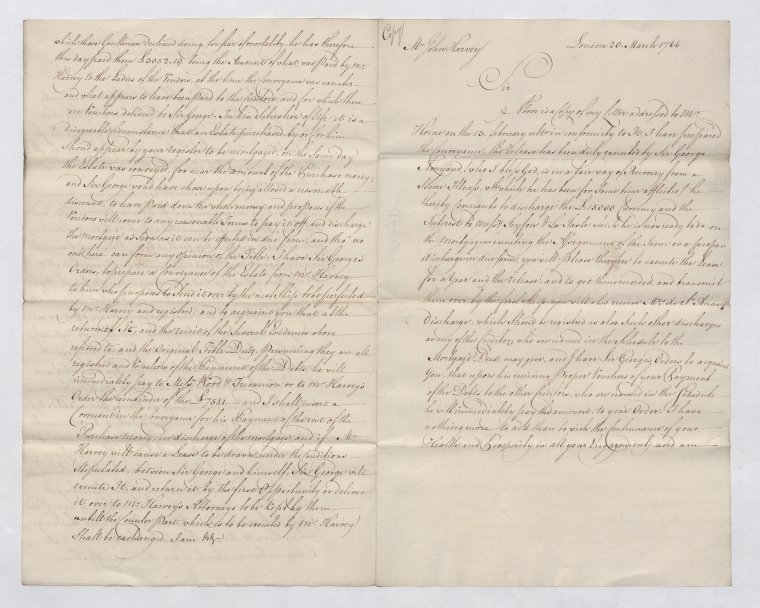 which those Gentlemen declined doing, for fear of mortality, he has therefore
this day paid them £3052.19 being the Amount of what was paid by Mr
Harvey to the Ladies of the Vendors, at the time the Conveyance was executed
and what appears to have been paid to the Creditors, and for which there
are Vouchers delivered to Sir George. In his Situation of life it is a
disagreable Circumstance that an Estate purchased by or for him
Shoud appear by your Register to be mortgaged, on the Same day
the Estate was conveyed, for near the amount of the Purchase money;
and Sir George woud have chose upon being allowed a reasonable
discount, to have paid down the whole money and proposes if the
Vendors will come to any reasonable Terms to pay it off, and discharge
the Mortgage as soon as it can be effected in due form, and tho' no
one here can form any opinion of the Title, I have Sir George's
Orders, to prepare a Conveyance of the Estate from Mr. Harvey
to him who purposes to Send it over by the next Ships to be perfected
by Mr. Harvey and registered, and to acquaint you that at the
return of It, and the receit of the Several Evidences above
referred to, and the Original Title Deeds, Presuming they are all
registered and Vouchers of the Payment of the Debts, he will
immediately pay to Messrs. Wood & Trevanion or to Mr. Harvey's
Order the remainder of the £7511 — and I shall insert a
Covenant in the Conveyance for his Payment of the rest of the
Purchase Money in discharge of the mortgage, and if Mr.
Harvey will cause a Lease to be drawn under the Conditions
Stipulated, between Sir George and himself, Sir George will
execute It, and return it by the first Opportunity or deliver
it over to Mr. Harvey's Attorneys to be kept by them
untill the Counter Part, which is to be executed by Mr. Harvey
Shall be exchanged. I am &c.
Copy
Mr. John Harvey London 20. March 1766
Sir
Above is a Copy of my letter addressed to Mr.
Horne on the 15. february ulto. in conformity to It, I have prepared
the Conveyance. the release has been duly executed by Sir George
Amyand, (who I bless God, is in a fair way of Recovery from a
Severe Illness, with which he has been for some time afflicted) he
thereby Covenants to discharge the £15000 Currency and the
Interest to Messrs. Tryson & La Taste which he is now ready to do on
the Mortgagees executing the Assignment of the Term or a proper
Discharge in due form. you will Please therefore to execute the Lease
for a year and the release, and to get them recorded, and transmit
them over by the first Ship, you will also receive Mr. de St. Anary's
Discharge, which Shoud be registered as also Such other discharges
as any of the Creditors who are named in the Schedule to the
Mortgage Deed, may give, and I have Sir George's Orders to acquaint
You, that upon his receiving Proper Vouchers of your Payment
of the Debts to the other Creditors, who are named in the Schedule
he will immediately pay the amount to your Order. I have
nothing more to add than to wish the Continuance of your
Health and Prosperity in all your Engagements, and am